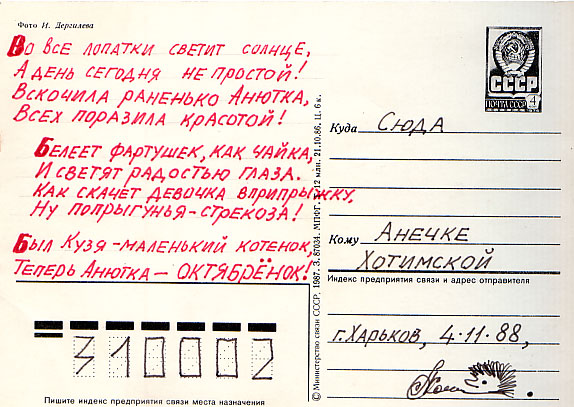 Фото И. Дергилева
Во все лопатки светит солнце,
А день сегодня не простой!
Вскочила раненько Анютка,
Всех поразила красотой!
Белеет фартушек, как чайка,
И светят радостью глаза.
Как скачет девочка вприпрыжку,
Ну попрыгунья-стрекоза!
Был Кузя-маленький котенок,
Теперь Анютка - ОКТЯБРЁНОК!
310002
Пишите индекс предприятия связи места назначения
© Министерство связи СССР, 1987. З. 87034. МПФГ. 12 млн. 21.10.86. Ц. 6 к.
СССР
ПОЧТА СССР 4
Куда Сюда
Кому Анечке
Хотимской
Индекс предприятия связи и адрес отправителя
г. Харьков, 4.11.88,